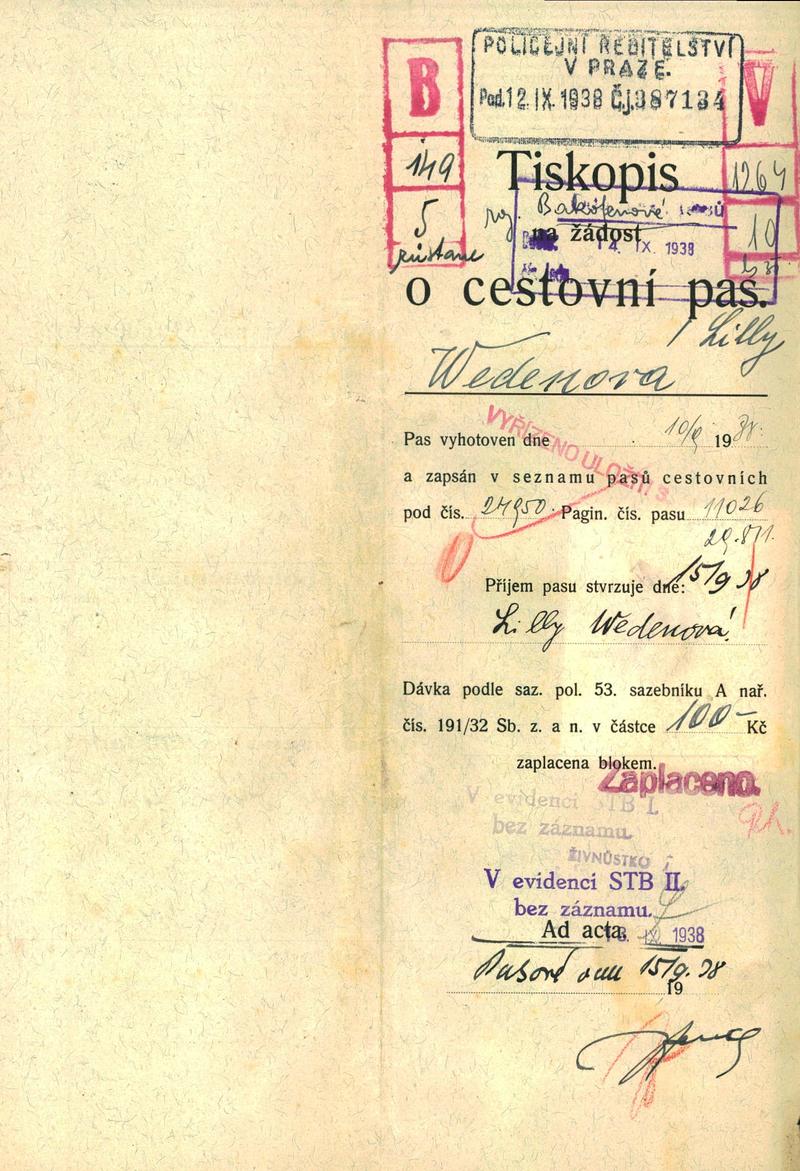 POLICEJNÍ ŘEDITELSTVÍ
V PRAZE.
Pod. 12. IX. 1938 Čj. 387134
B
V
149
1264
Tiskopis
5
10
zůstane
na žádost
14. IX. 1938
o cestovní pas.
Lilly
Wedenova
VYŘÍZENO ULOŽITI
Pas vyhotoven dne 10/9 1938.
a zapsán v seznamu pasů cestovních
pod čís. 24950. Pagin. čís. pasu 11026
Příjem pasu stvrzuje dne: 15/9 38
Lilly Wedenová
Dávka podle saz. pol. 53. sazebníku A nař.
čís. 191/32 Sb. z. a n. v částce 100- Kč
zaplacena blokem.
Zaplaceno.
V evidenci STB I.
bez záznamu.
ŽIVNOSTKO
V evidenci STB II.
bez záznamu.
Ad acta.
IX 1938
15/9. 38
19